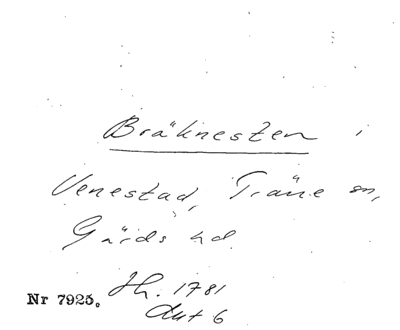 Bräknesten i
Venestad, Träne sn,
Gärds hd.
Jh. 1781
Akt 6
Nr 7925.